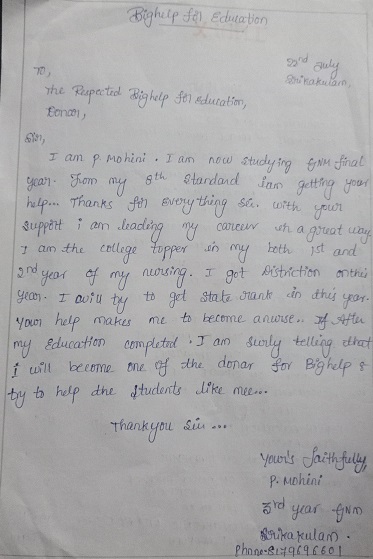 Bighelp for Education
22nd July
Srikakulam,
To,
The Respected Bighelp for Education,
Donar,
Sir,
I am P. Mohini. I am now studying GNM final
year. From my 6th Standard I am getting your
help... Thanks for everything Sir. with your
Support i am leading my career in a great way
I am the college topper in my both 1st and
2nd year of my nursing. I got Distriction on this
year. I will try to get state rank in this year.
your help makes me to become a nurse.. If After
my Education completed. I am surly telling that
i will become one of the donar for Bighelp &
try to help the students like mee...
Thankyou Sir...
Your's faithfully,
P. Mohini
3rd year GNM
Srikakulam.
Phone: